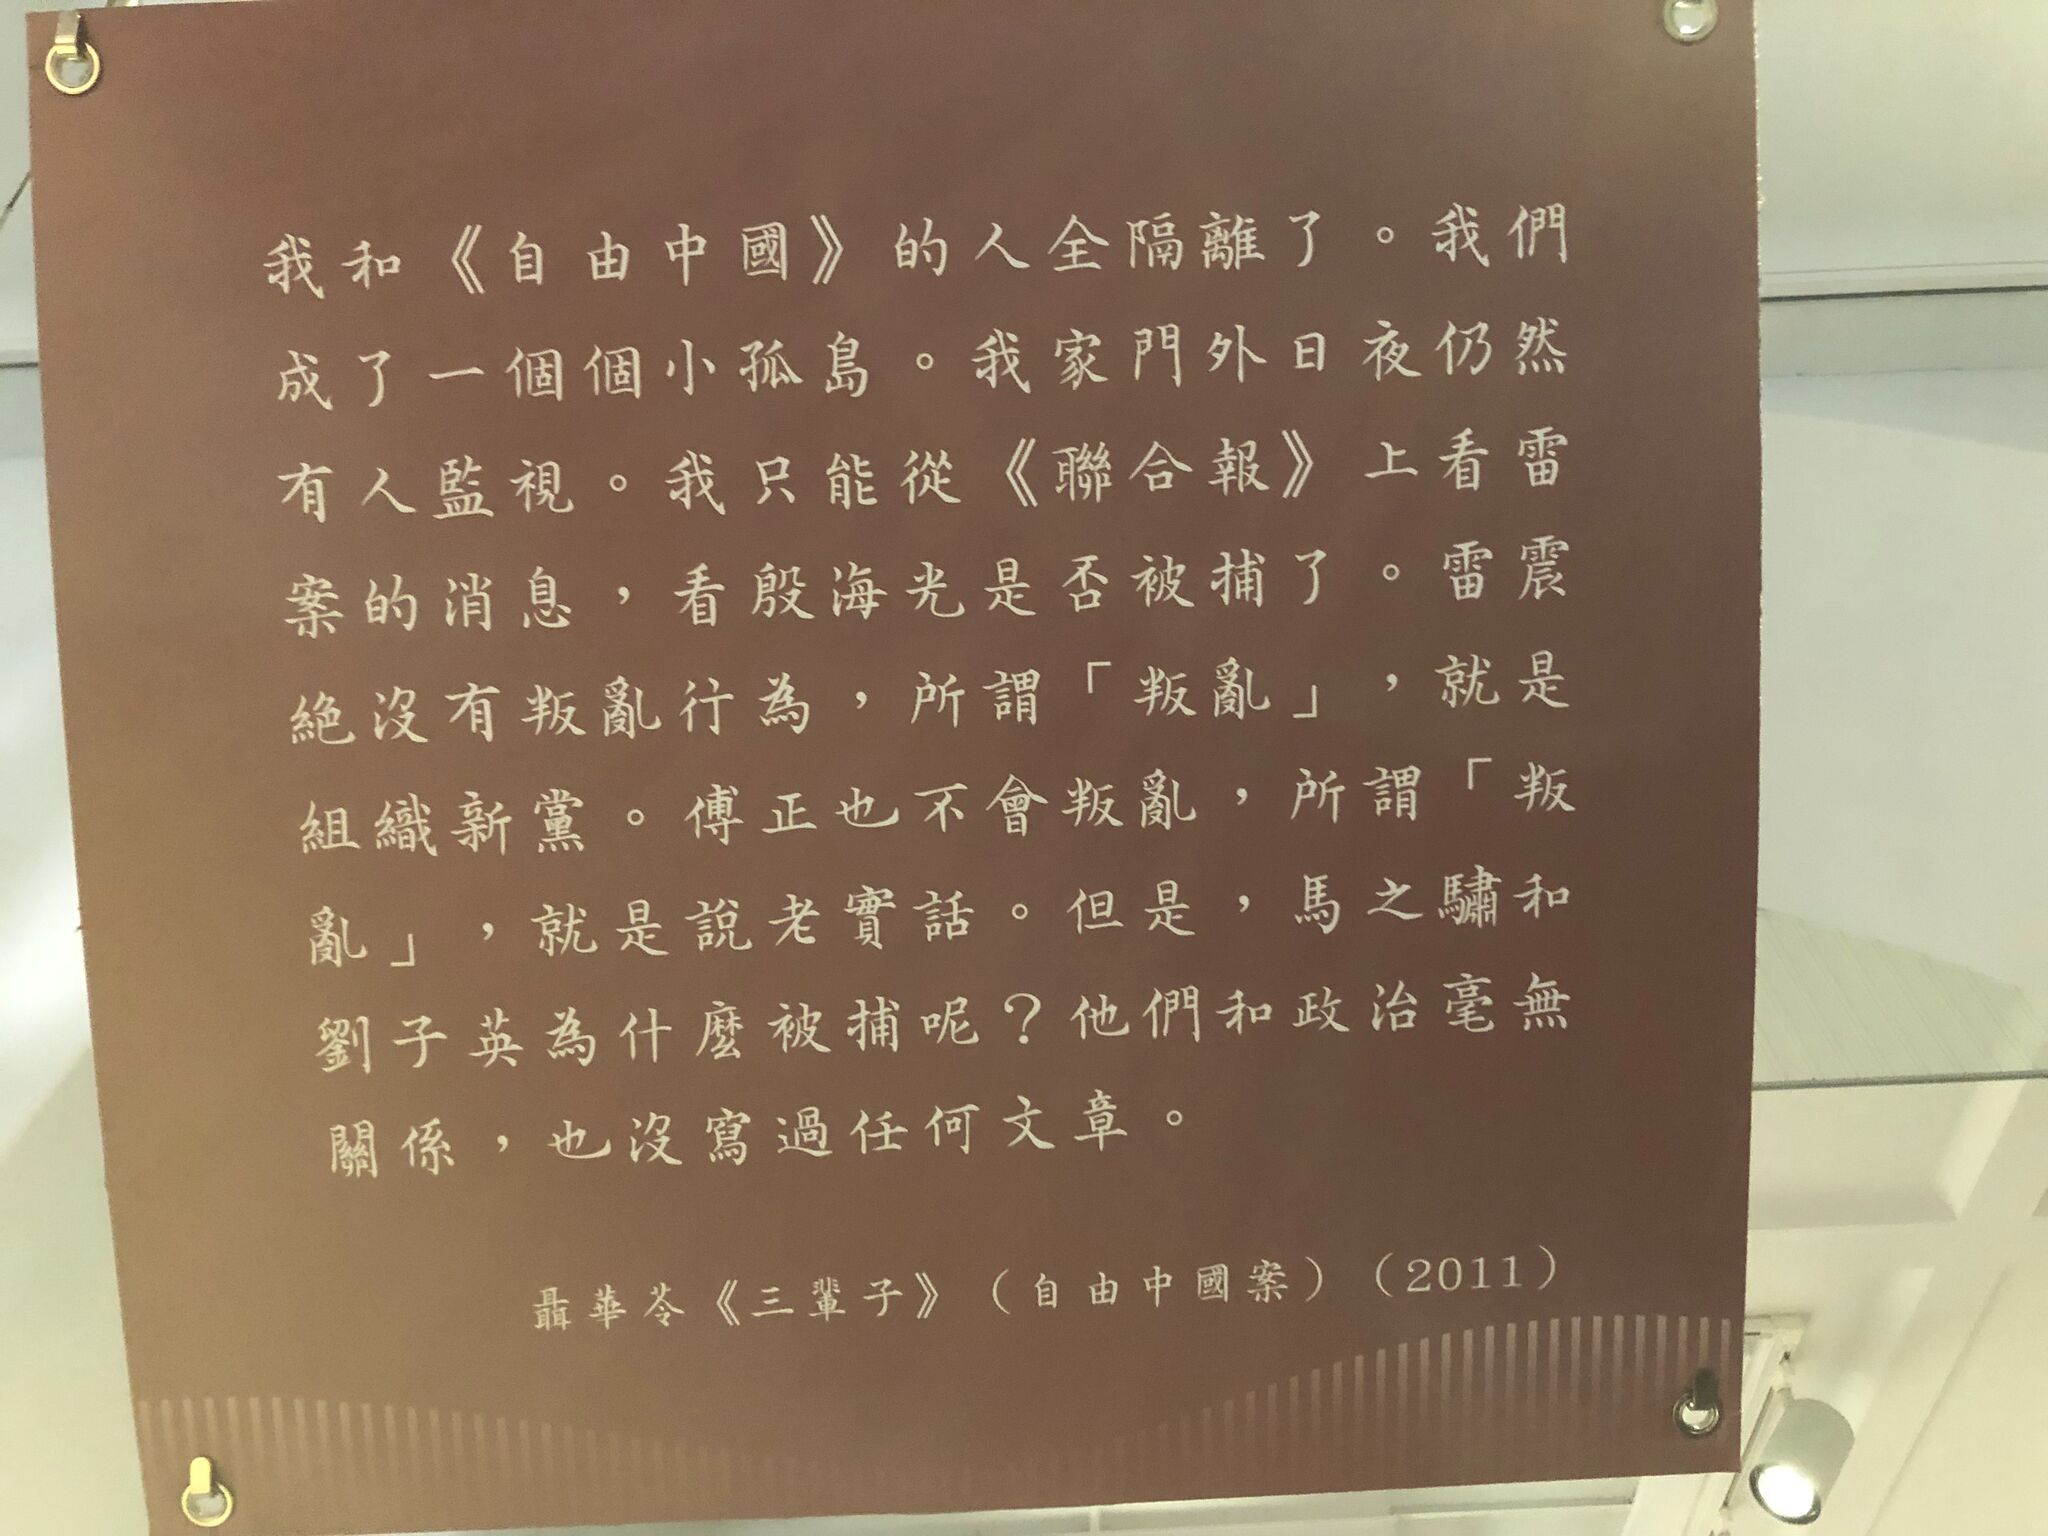 我和《自由中國》的人全隔離了。我們
成了一個個小孤島。我家門外日夜仍然
有人監視。我只能從《聯合報》上看雷
案的消息，看殷海光是否被捕了。雷震
絕沒有叛亂行為，所謂「叛亂」，就是
組織新黨。傅正也不會叛亂，所謂「叛
亂」，就是說老實話。但是，馬之驌和
劉子英為什麼被捕呢？他們和政治毫無
關係，也沒寫過任何文章。
聶華苓《三輩子》（自由中國案）（2011）